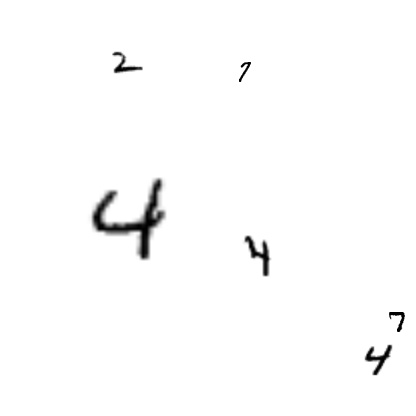 2 7
4
4
7
4